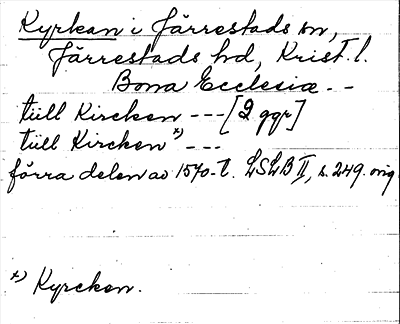 Kyrkan i Järrestads sn,
Järrestads hd, Krist. l.
Bona Ecclesiæ - -
tüll Kircken --- [2 ggr]
tüll Kircken *) ---
förra delen av 1570-t. LSLB II, s. 249. orig.
*) Kyrcken.